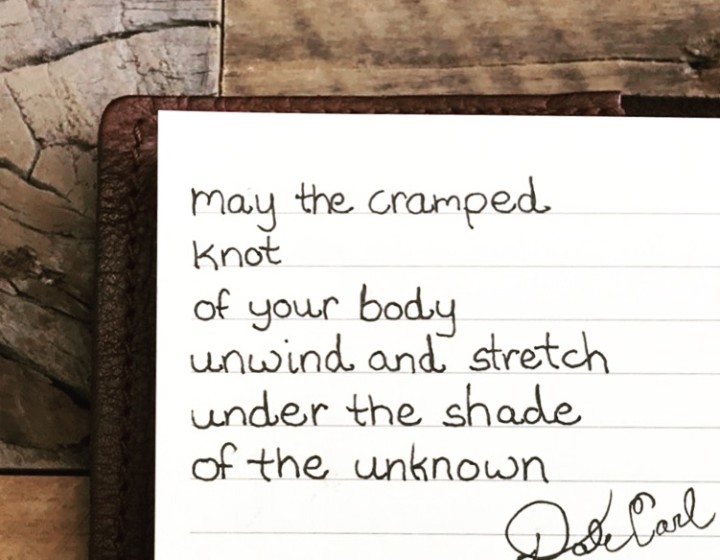 may the cramped
knot
of your body
unwind and stretch
under the shade
of the unknown
Carl